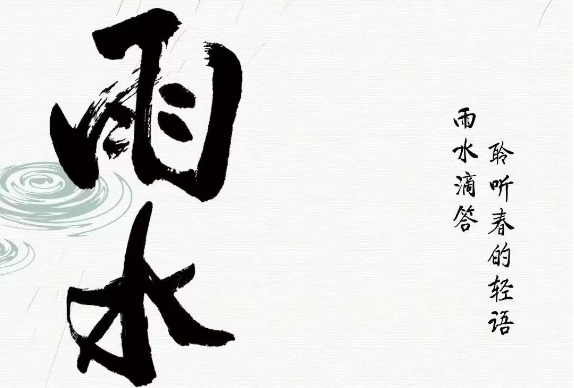 雨水
雨水滴答
聆听春的轻语